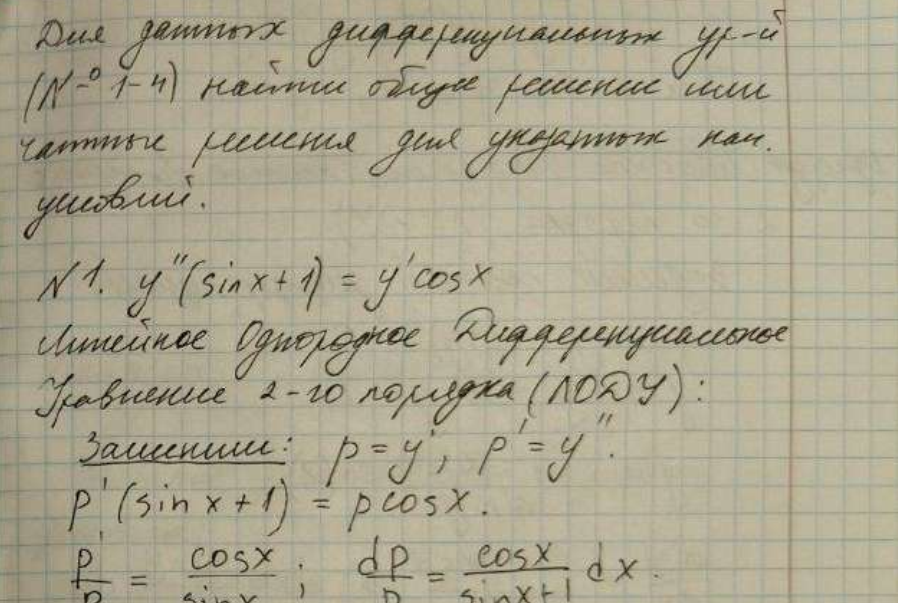 Для данных дифференциальных ур-й
(№ 1-4) найти общие решение или
частные решения для указанных нач.
условий.
N1. y''(sinx+1) = y'cosx
Линейное Однородное Дифференциальное
Уравнение 2-го порядка (ЛОДУ):
Заменим: p=y', p'=y''.
p'(sinx+1) = pcosx.
p'/p = cosx/sinx ; dp/p = cosx/sinx+1 dx.